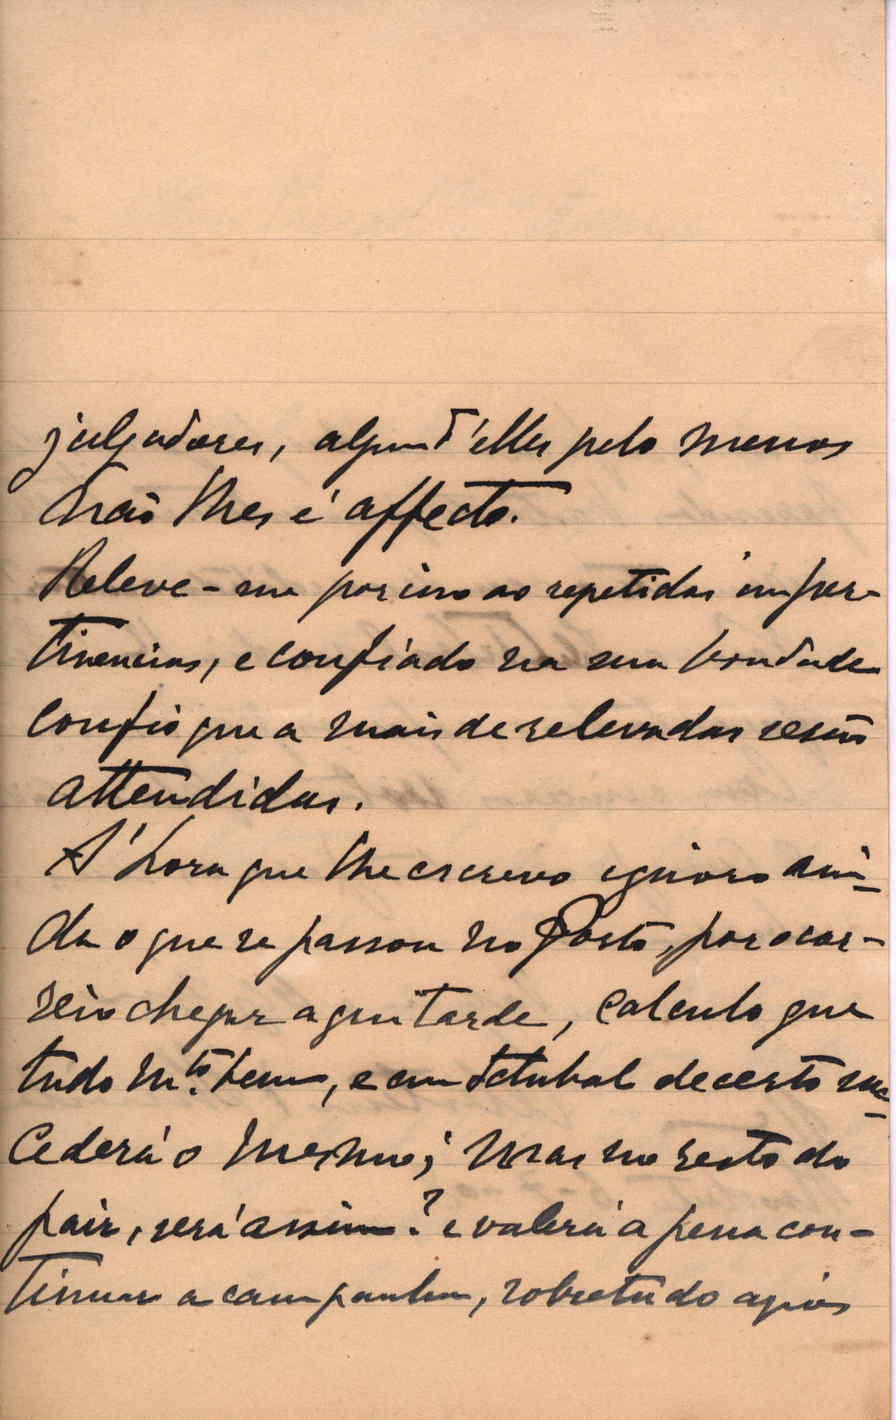 julgadores, algum d'elles pelo menos
não lhes é affecto.
Releve-me por isso as repetidas imper-
tinencias, e confiado na sua bondade
confio que a mais de relevadas serão
attendidas.
A' hora que lhe escrevo ignoro ain-
da o que se passou no Porto, por o cor-
reio chegar aqui tarde, calculo que
tudo m.to bem, e em Setubal decerto suc-
cederá o mesmo; mas no resto do
paiz, será assim? e valerá a pena con-
tinuar a campanha, sobretudo após